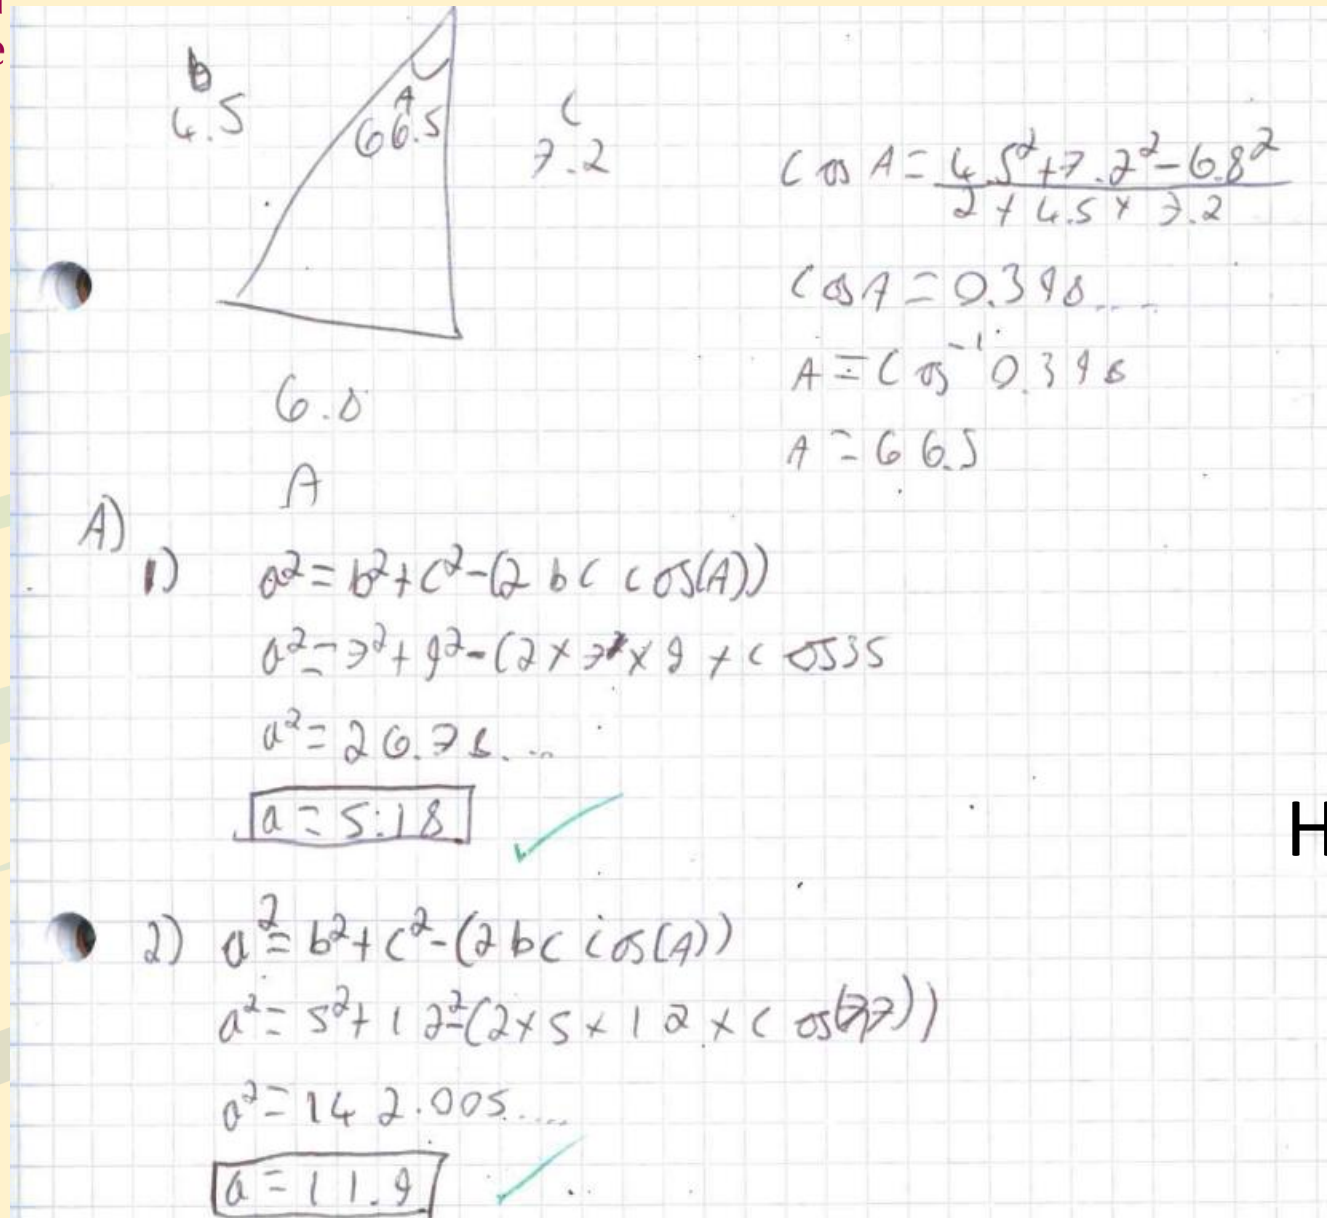 b
4.5
A
66.5
C
7.2
6.8
A
Cos A = 4.5²+7.2²-6.8²
2 × 4.5 × 7.2
Cos A = 0.398....
A = Cos⁻¹ 0.398
A = 66.5
A)
1) a² = b²+c²-(2 bc cos(A))
a² = 7²+9²-(2 × 7 × 9 × cos35
a² = 26.78....
a = 5.18
H
2) a² = b²+c²-(2bc cos(A))
a² = 5²+12²-(2×5×12×cos(77))
a² = 142.005.....
a = 11.9